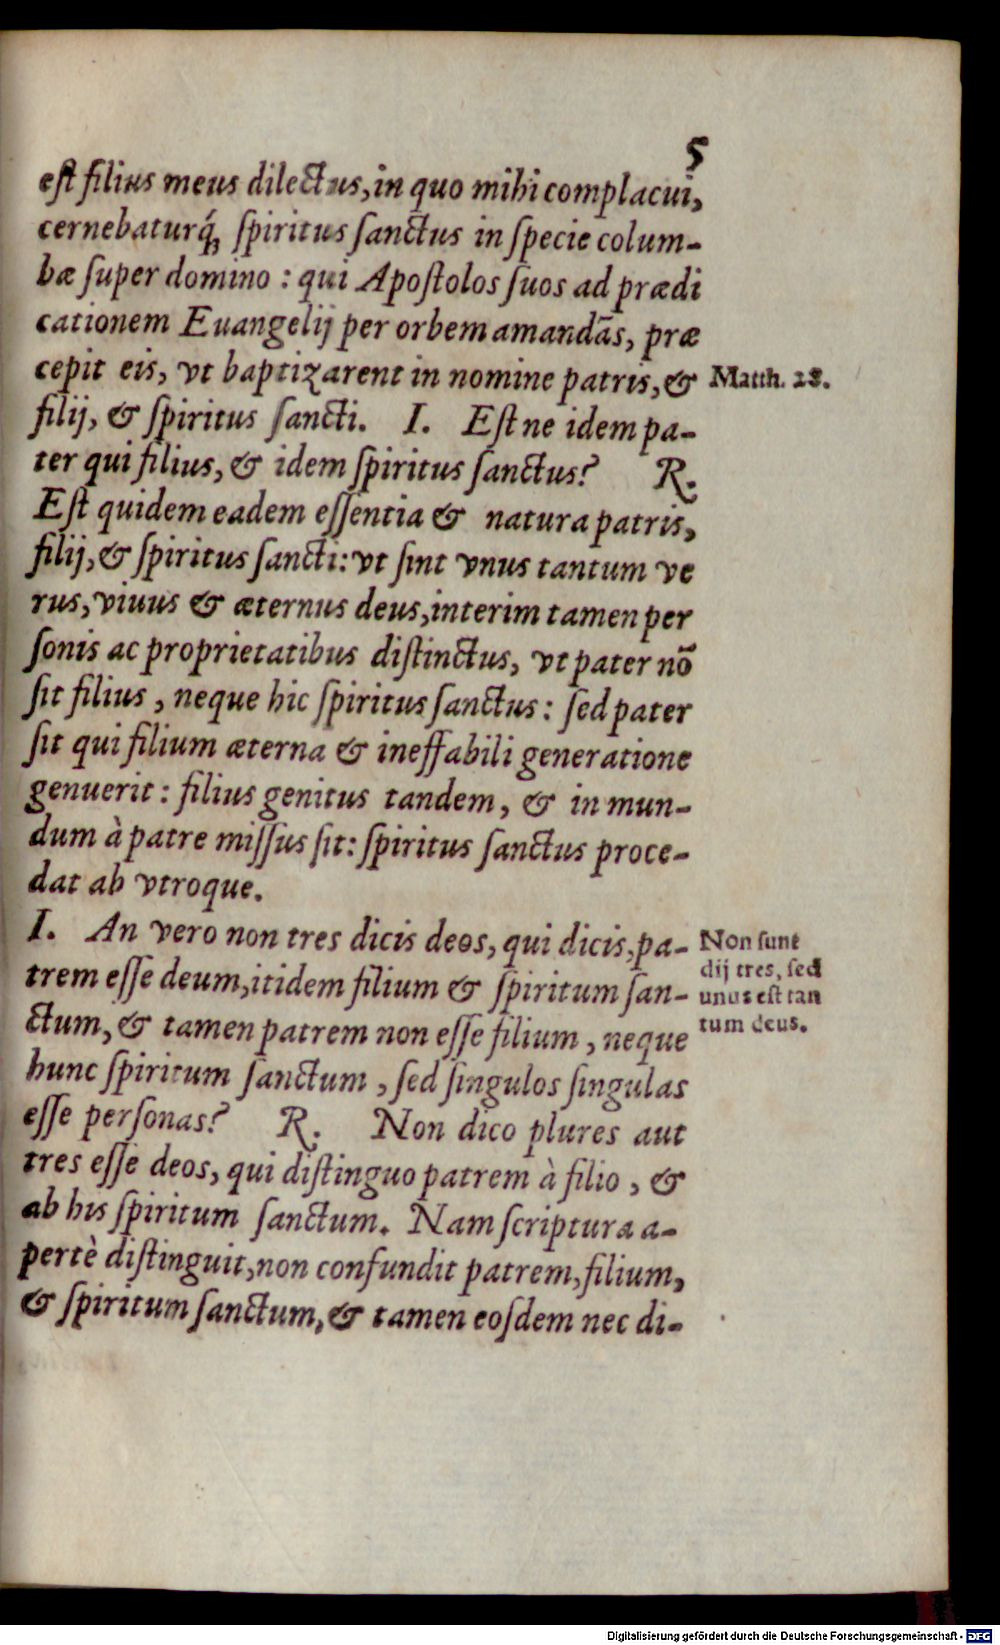 5
est filius meus dilectus, in quo mihi complacui,
cernebaturq́; spiritus sanctus in specie colum-
bæ super domino : qui Apostolos suos ad prædi
cationem Euangelij per orbem amandãs, præ
cepit eis, vt baptizarent in nomine patris, &
Matth. 28.
filij, & spiritus sancti. I. Est ne idem pa-
ter qui filius, & idem spiritus sanctus? R.
Est quidem eadem essentia & natura patris,
filij, & spiritus sancti: vt sint vnus tantum ve
rus, viuus & æternus deus, interim tamen per
sonis ac proprietatibus distinctus, vt pater nõ
sit filius, neque hic spiritus sanctus: sed pater
sit qui filium æterna & ineffabili generatione
genuerit: filius genitus tandem, & in mun-
dum à patre missus sit: spiritus sanctus proce-
dat ab vtroque.
I. An vero non tres dicis deos, qui dicis, pa-
trem esse deum, itidem filium & spiritum san-
ctum, & tamen patrem non esse filium, neque
hunc spiritum sanctum, sed singulos singulas
esse personas? R. Non dico plures aut
tres esse deos, qui distinguo patrem à filio, &
ab his spiritum sanctum. Nam scriptura a-
pertè distinguit, non confundit patrem, filium,
& spiritum sanctum, & tamen eosdem nec di-
Non sunt
dij tres, sed
unus est tan
tum deus.
Digitalisierung gefördert durch die Deutsche Forschungsgemeinschaft - DFG